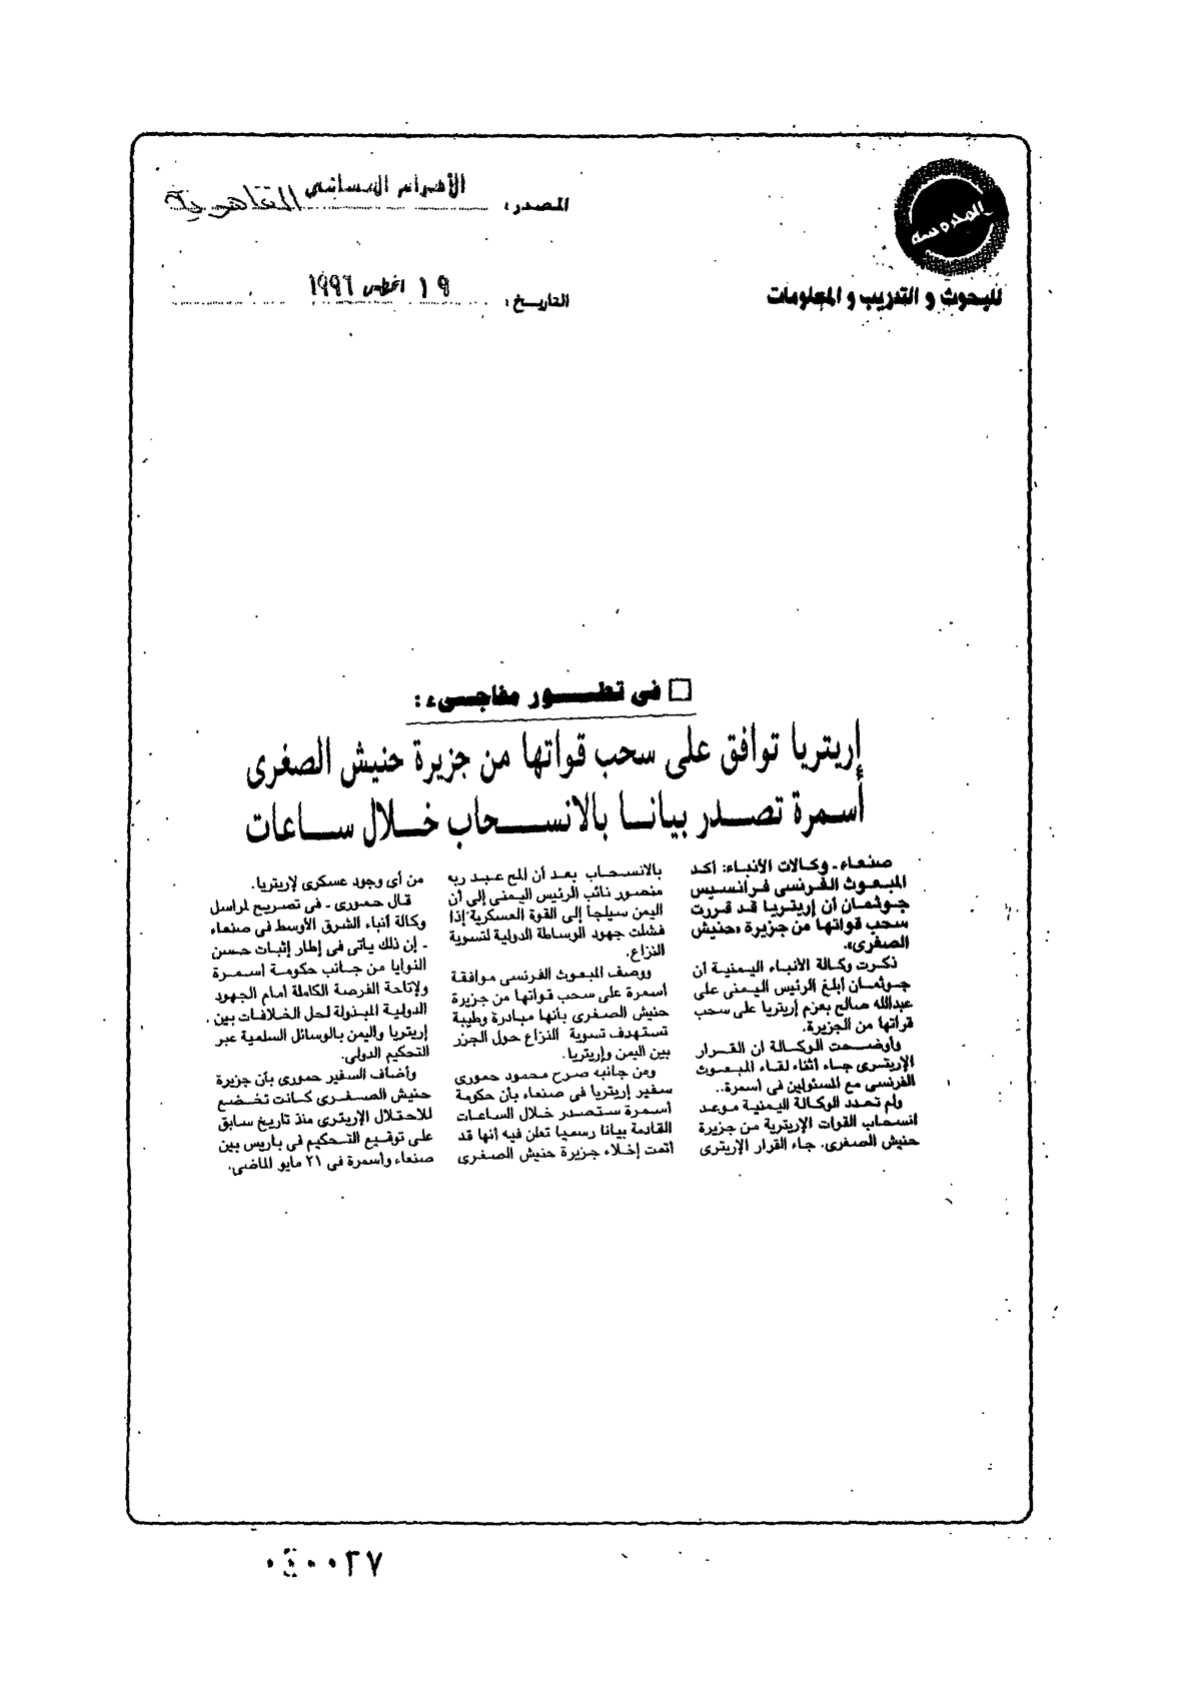 المحروسة
للبحوث و التدريب و المعلومات
المصدر: الأهرام المسائى القاهرية
التاريخ: ١٩ أغسطس ١٩٩٦
□ فى تطـــور مفاجـــىء:
إريتريا توافق على سحب قواتها من جزيرة حنيش الصغرى
أسـمرة تصـــدر بيانــا بالانســـــحاب خــلال ســـاعات
صنعاء ـ وكالات الأنباء: أكد
المبعوث الفرنسى فرانسيس
جوثمان أن إريتريا قد قررت
سحب قواتها من جزيرة «حنيش
الصغرى».
ذكرت وكالة الأنباء اليمنية أن
جوثمان أبلغ الرئيس اليمنى على
عبدالله صالح بعزم إريتريا على سحب
قراتها من الجزيرة.
وأوضحت الوكالة ان القرار
الإريترى جاء أثناء لقاء المبعوث
الفرنسى مع المسئولين فى أسمرة..
ولم تحدد الوكالة اليمنية موعد
انسحاب القوات الإريترية من جزيرة
حنيش الصغرى. جاء القرار الإريترى
بالانسحاب بعد أن ألمح عبد ربه
منصور نائب الرئيس اليمنى إلى أن
اليمن سيلجأ إلى القوة العسكرية إذا
فشلت جهود الوساطة الدولية لتسوية
النزاع.
ووصف المبعوث الفرنسى موافقة
أسمرة على سحب قواتها من جزيرة
حنيش الصغرى بأنها مبادرة وطيبة
تستهدف تسوية النزاع حول الجزر
بين اليمن وإريتريا.
ومن جانبه صرح محمود حمورى
سفير إريتريا فى صنعاء بأن حكومة
أسمرة ستصدر خلال الساعات
القادمة بيانا رسميا تعلن فيه أنها قد
أتمت إخلاء جزيرة حنيش الصغرى
من أى وجود عسكرى لإريتريا.
قال حمورى ـ فى تصريح لمراسل
وكالة أنباء الشرق الأوسط فى صنعاء
ـ إن ذلك يأتى فى إطار إثبات حسن
النوايا من جانب حكومة أسمرة
ولإتاحة الفرصة الكاملة أمام الجهود
الدولية المبذولة لحل الخلافات بين
إريتريا واليمن بالوسائل السلمية عبر
التحكيم الدولى.
وأضاف السفير حمورى بأن جزيرة
حنيش الصغرى كانت تخضع
للاحتلال الإريترى منذ تاريخ سابق
على توقيع التحكيم فى باريس بين
صنعاء وأسمرة فى ٢١ مايو الماضى.
٠٤٠٠٢٧